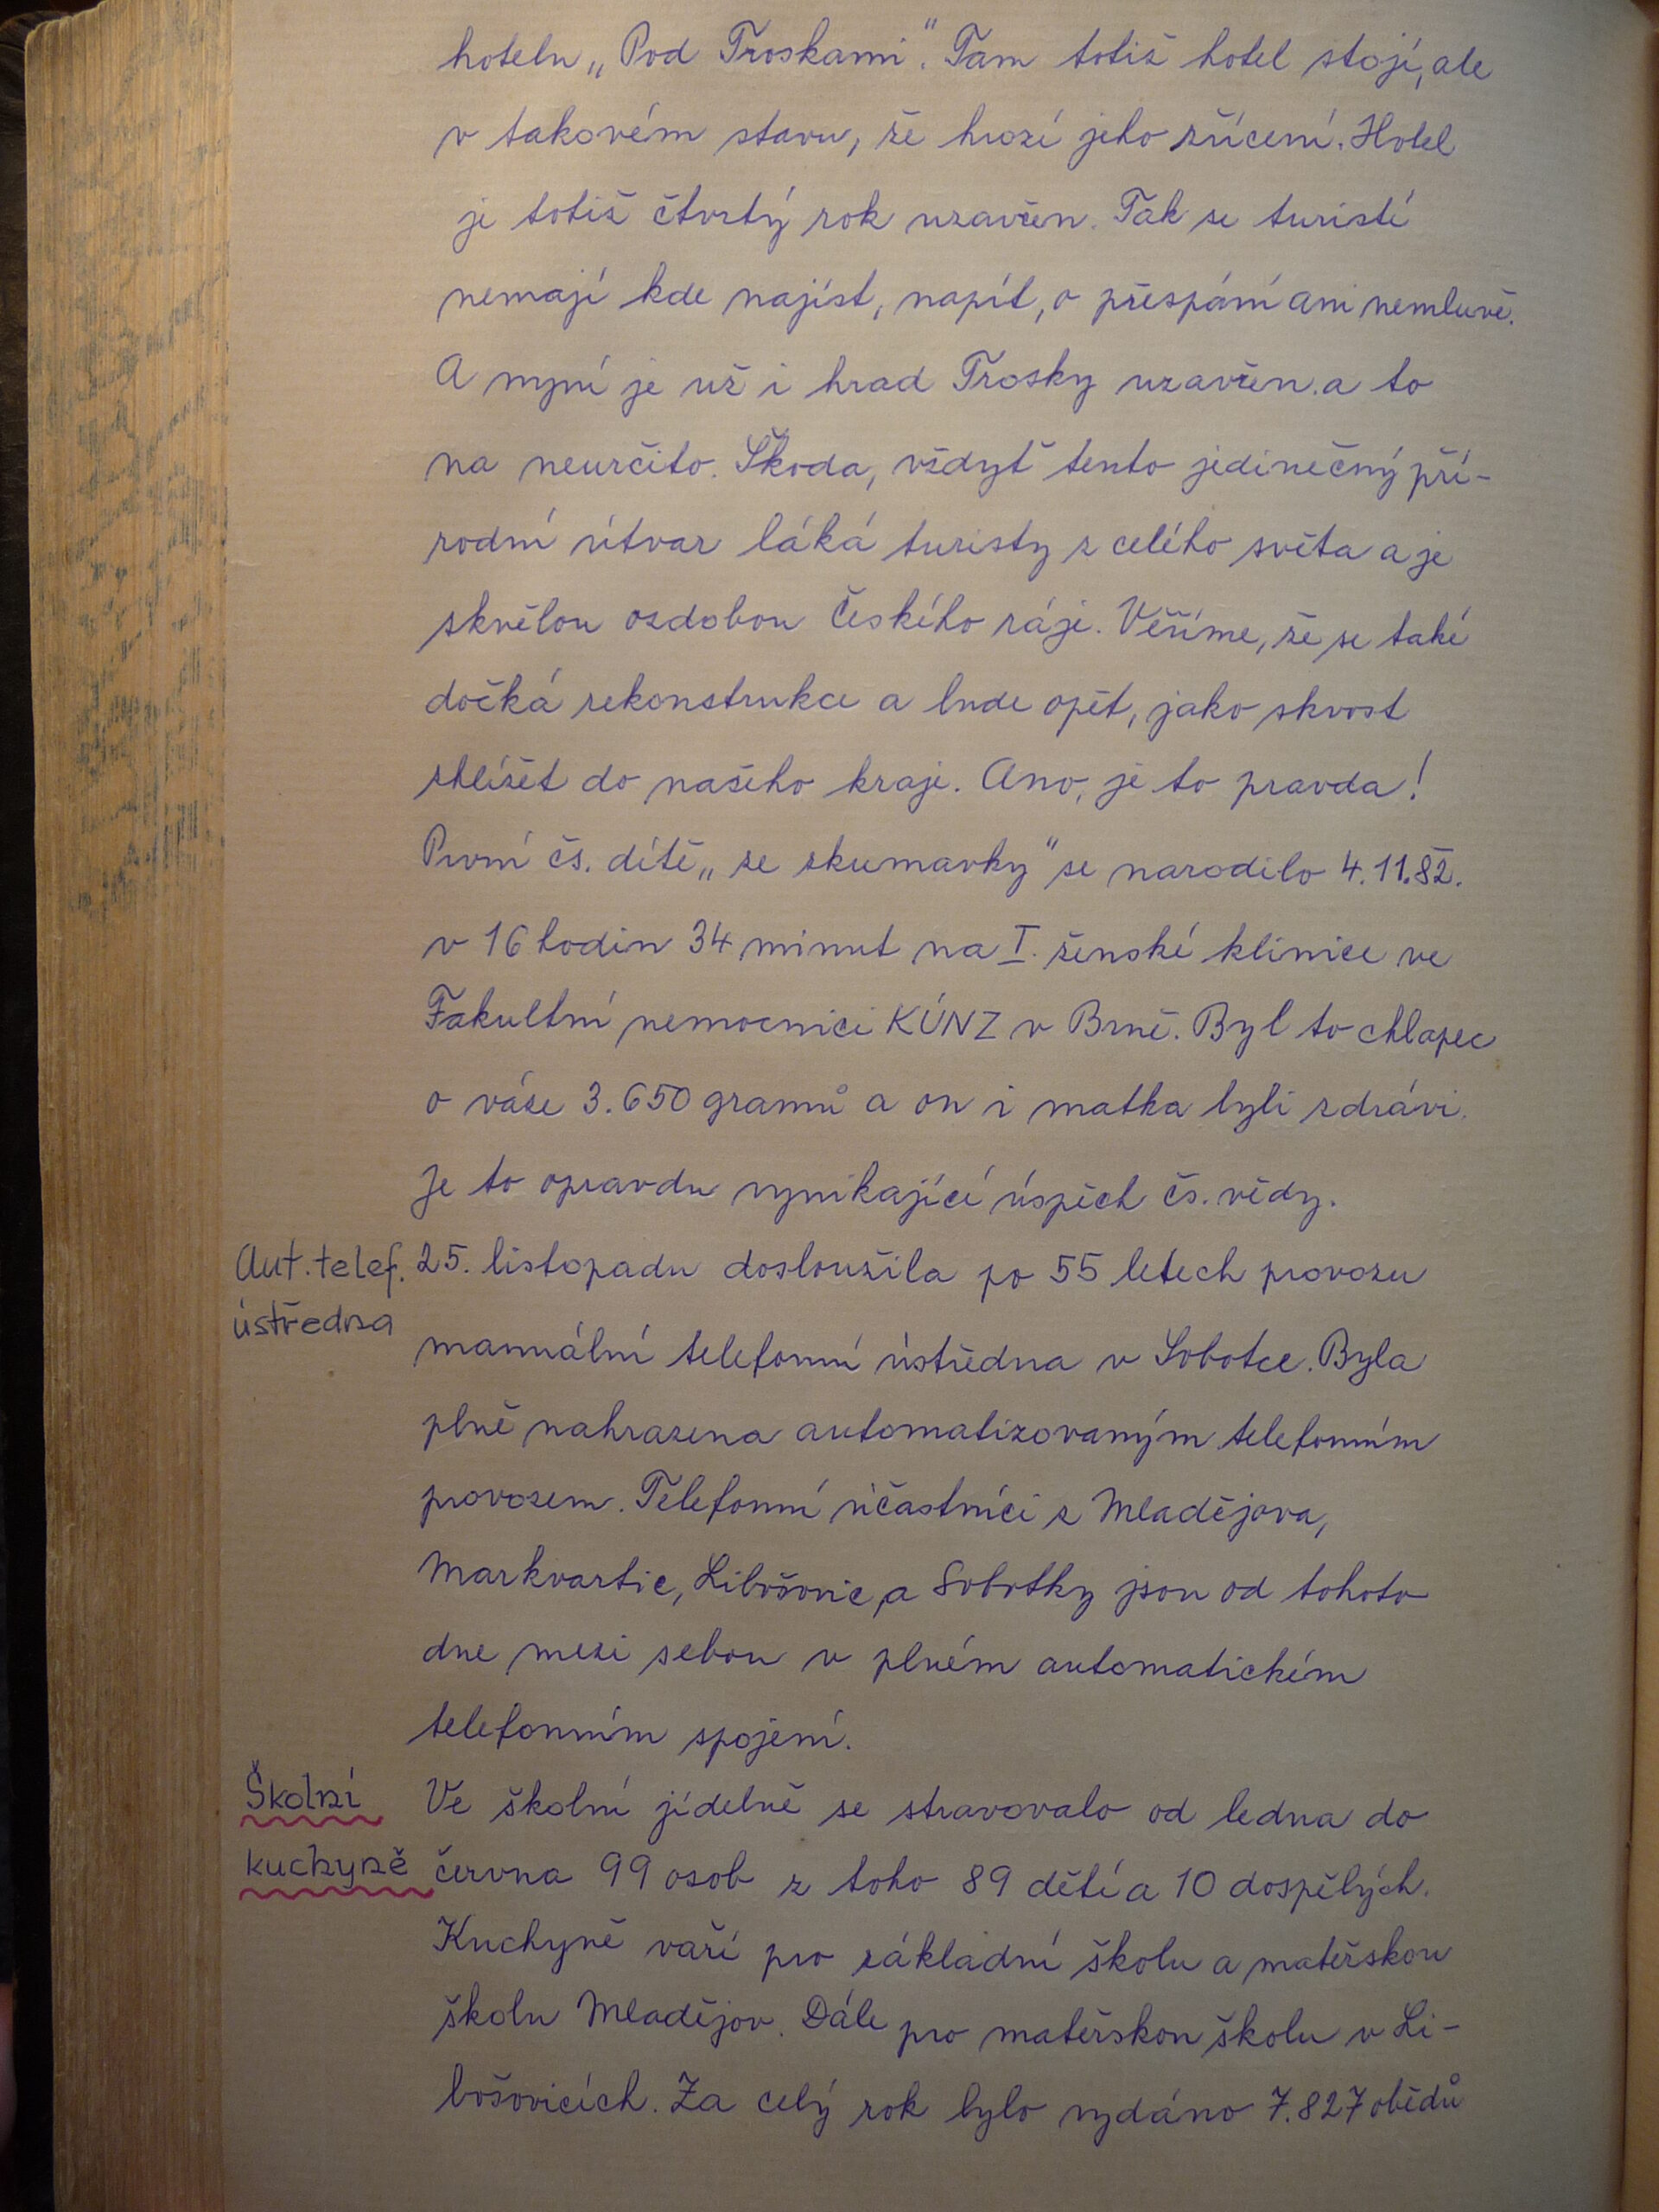 hotelu „Pod Troskami". Tam totiž hotel stojí, ale
v takovém stavu, že hrozí jeho zřícení. Hotel
je totiž čtvrtý rok uzavřen. Tak se turisté
nemají kde najíst, napít, o přespání ani nemluvě.
A nyní je už i hrad Trosky uzavřen a to
na neurčito. Škoda, vždyť tento jedinečný pří-
rodní útvar láká turisty z celého světa a je
skvělou ozdobou Českého ráje. Věříme, že se také
dočká rekonstrukce a bude opět, jako skvost
shlížet do našeho kraje. Ano, je to pravda!
První čs. dítě „ze zkumavky" se narodilo 4.11.82.
v 16 hodin 34 minut na I. ženské klinice ve
Fakultní nemocnici KÚNZ v Brně. Byl to chlapec
o váze 3.650 gramů a on i matka byli zdrávi.
Je to opravdu vynikající úspěch čs. vědy.
Aut. telef. 25. listopadu dosloužila po 55 letech provozu
ústředna
manuální telefonní ústředna v Sobotce. Byla
plně nahrazena automatizovaným telefonním
provozem. Telefonní účastníci z Mladějova,
Markvartic, Libošovic, a Sobotky jsou od tohoto
dne mezi sebou v plném automatickém
telefonním spojení.
Školní Ve školní jídelně se stravovalo od ledna do
kuchyně června 99 osob z toho 89 dětí a 10 dospělých.
Kuchyně vaří pro základní školu a mateřskou
školu Mladějov. Dále pro mateřskou školu v Li-
bošovicích. Za celý rok bylo vydáno 7.827 obědů